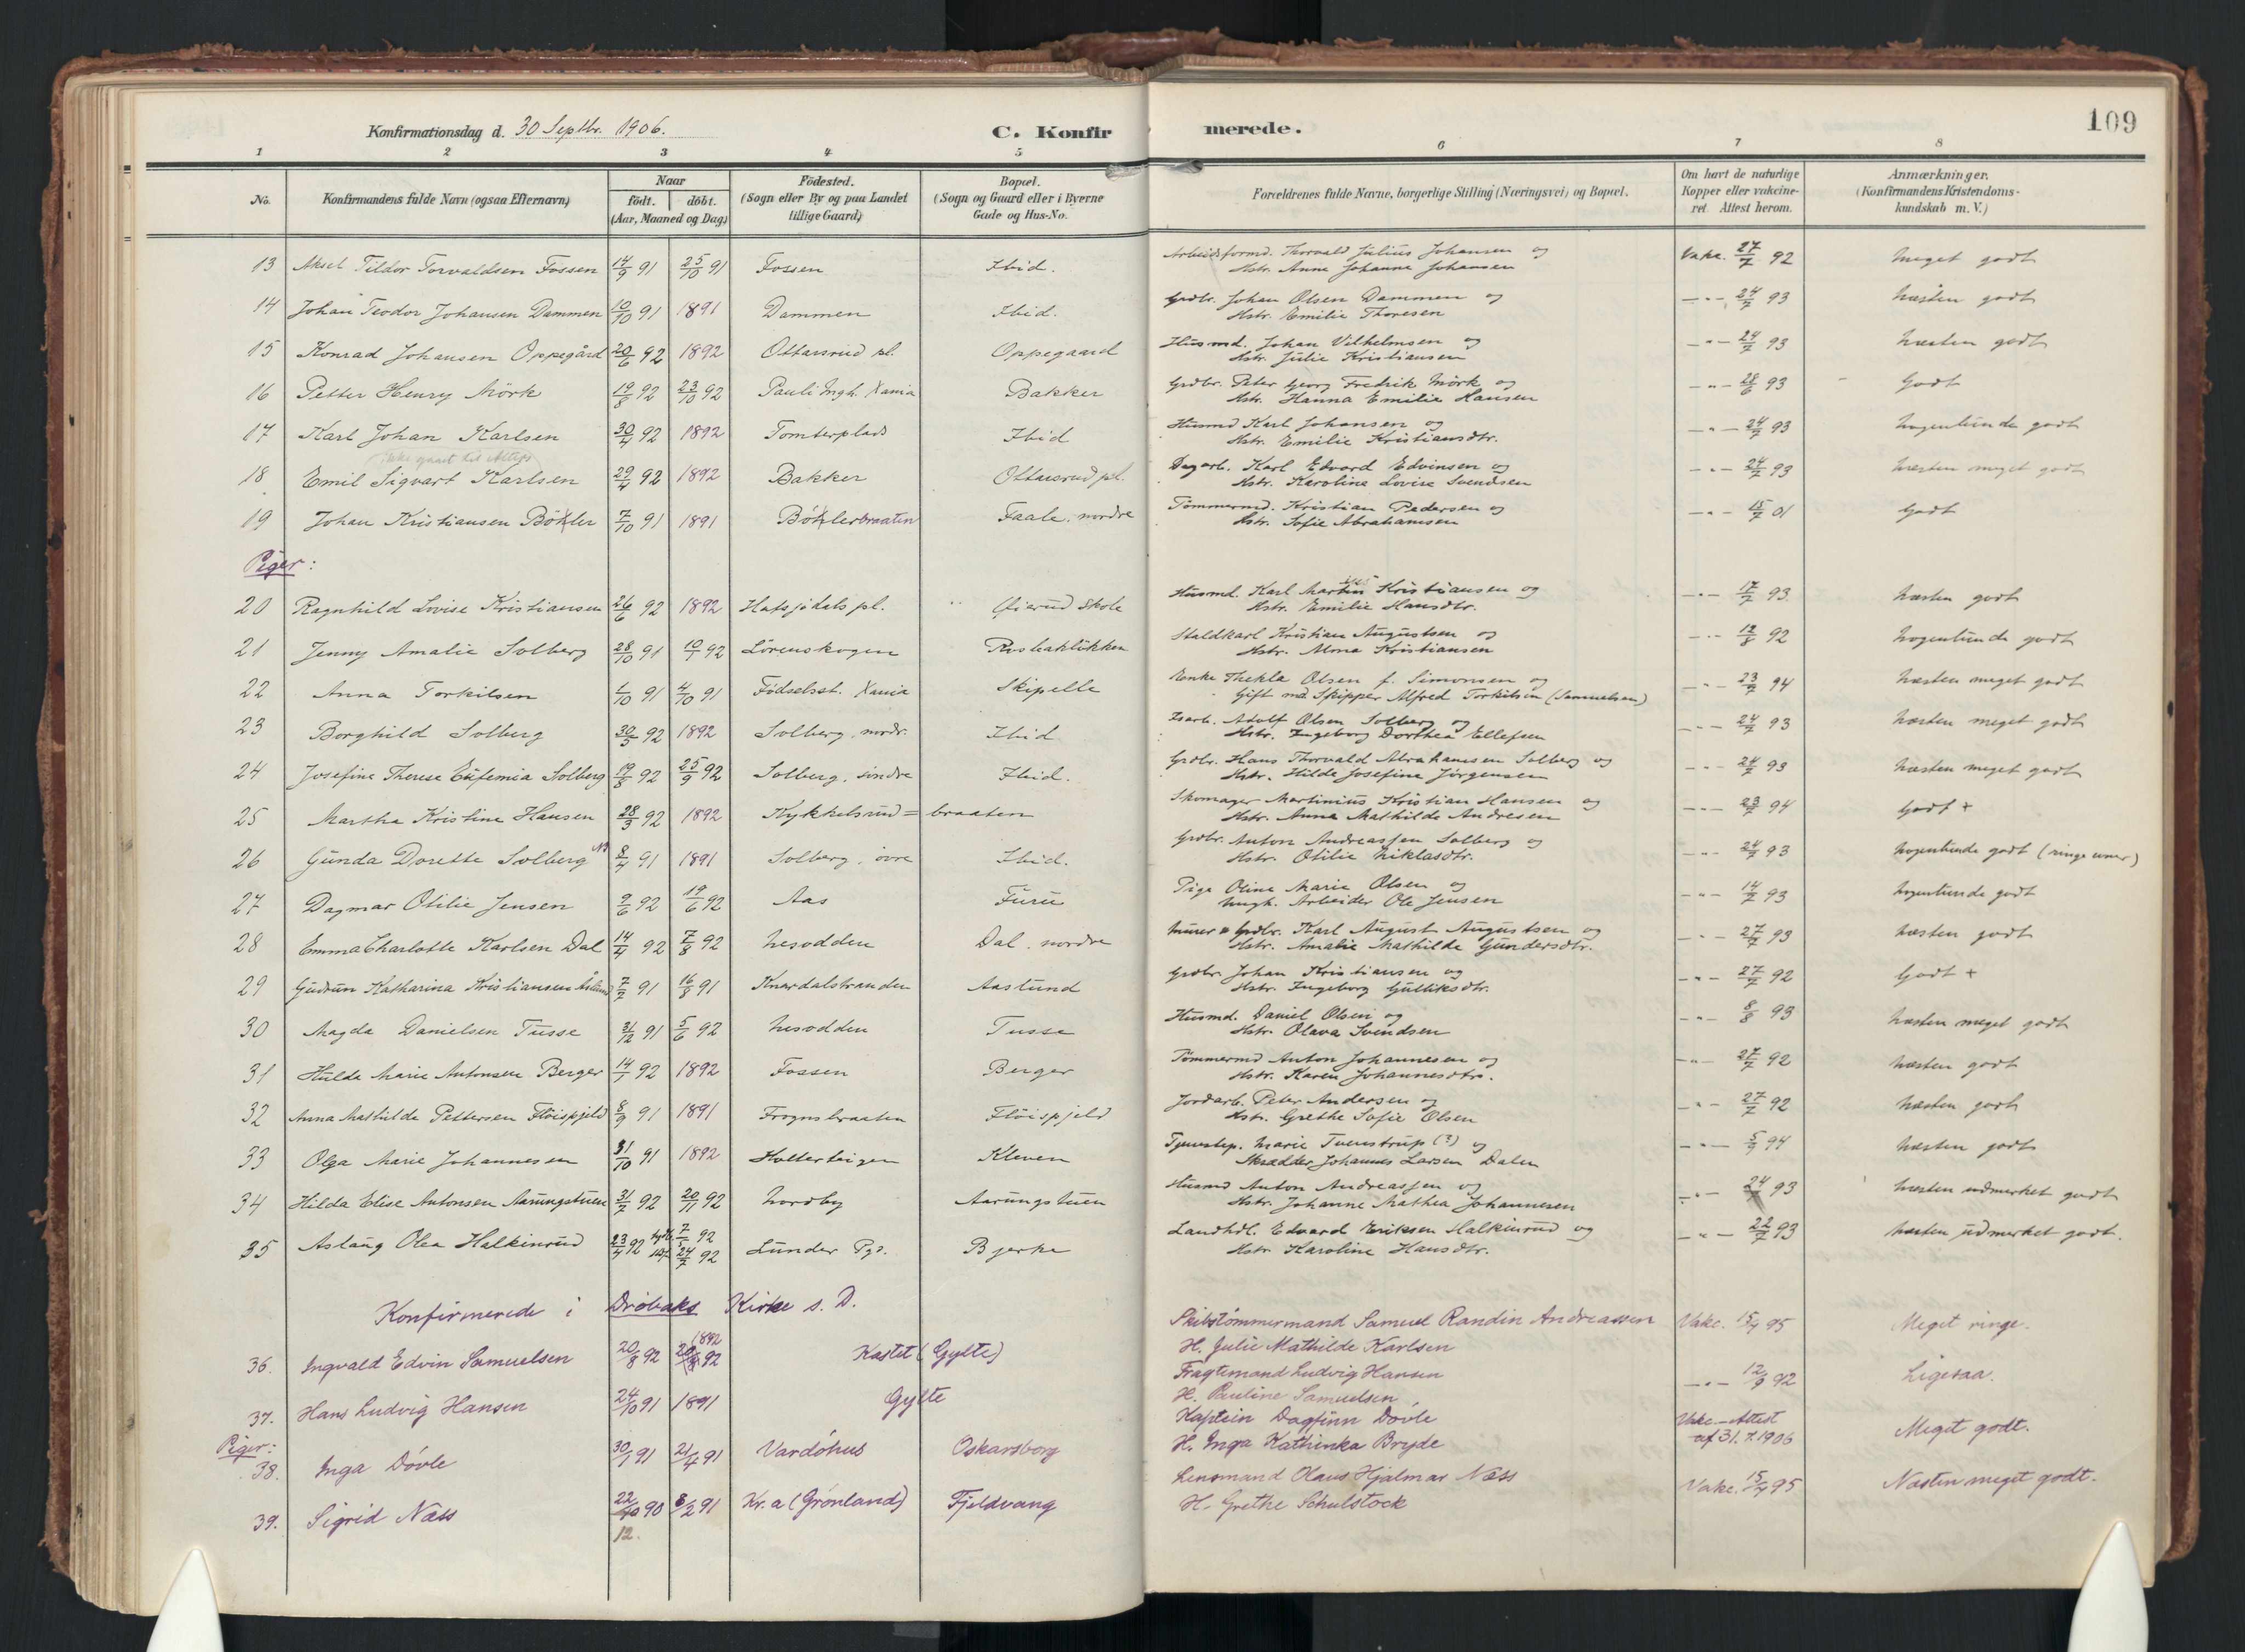 109
Konfirmationsdag d. 30 Septbr. 1906. C. Konfirmerede.
1 2 3 4 5 6 7 8
No. Konfirmandens fulde Navn (ogsaa Efternavn) Naar födt. döbt. (Aar, Maaned og Dag) Födested. (Sogn eller By og paa Landet tillige Gaard) Bopæl. (Sogn og Gaard eller i Byerne Gade og Hus-No. Forældrenes fulde Navne, borgerlige Stilling (Næringsvei) og Bopæl. Om havt de naturlige Kopper eller vakcineret. Attest herom. Anmærkninger. (Konfirmandens Kristendomskundskab m. V.)
13 Aksel Tildor Torvaldsen Fossen 14/9 91 25/10 91 Fossen Ibid. Arbeidsformd. Thorvald Julius Johansen og Hstr. Anne Johanne Johansen Vakc. 27/7 92 Meget godt
14 Johan Teodor Johansen Dammen 10/10 91 1891 Dammen Ibid. Grdbr. Johan Olsen Dammen og Hstr. Emilie Thoresen -"- 24/7 93 Næsten godt
15 Konrad Johansen Oppegård 20/6 92 1892 Ottarsrud pl. Oppegaard Husmd. Johan Vilhelmsen og Hstr. Julie Kristiansen -"- 24/7 93 Næsten godt
16 Petter Henry Mörk 19/8 92 23/10 92 Pauli Mgh. Xania Bakker Grdbr. Peter Georg Fredrik Mörk og Hstr. Hanna Emilie Hansen -"- 28/6 93 Godt
17 Karl Johan Karlsen 30/4 92 1892 Tomterplads Ibid Husmd Karl Johansen og Hstr. Emilie Kristiansdtr. -"- 24/7 93 Nogenlunde godt
ikke gaaet til Alters
18 Emil Sigvart Karlsen 29/4 92 1892 Bakker Ottarsrud pl. Dagarb. Karl Edvard Edvinsen og Hstr. Karoline Lovise Svendsen -"- 24/7 93 Næsten meget godt
19 Johan Kristiansen Bökler 7/10 91 1891 Böklerbraaten Faale, nordre Tömmermd. Kristian Pedersen og Hstr. Sofie Abrahamsen -"- 15/7 01 Godt
Piger:
20 Ragnhild Lovise Kristiansen 26/6 92 1892 Hafsjödals pl. skole Husmd. Karl Martin Kristiansen og Hstr. Emilie Hansdtr. -"- 17/7 93 Næsten godt
21 Jenny Amalie Solberg 28/10 91 10/1 92 Lörenskogen Rosbakløkken Staldkarl Kristian Augustsen og Hstr. Alma Kristiansen -"- 12/8 92 Nogenlunde godt
22 Anna Torkilsen 1/10 91 4/10 91 Födselsst. Xania Skipelle Enke Thekla Olsen f. Simonsen og Gift md Skipper Alfred Torkilsen (Samuelsen) -"- 23/7 94 Næsten meget godt
23 Borghild Solberg 30/3 92 1892 Solberg, nordr. Ibid Isarb. Adolf Olsen Solberg og Hstr. Ingeborg Dorthea Ellefsen -"- 24/7 93 Næsten meget godt
24 Josefine Therese Eufemia Solberg 19/8 92 25/9 92 Solberg, söndre Ibid. Grdbr. Hans Thorvald Abrahamsen Solberg og Hstr. Hilde Josefine Jörgensen -"- 24/7 93 Næsten meget godt
25 Martha Kristine Hansen 28/3 92 1892 Kykkelsrud= braaten Skomager Martinius Kristian Hansen og Hstr. Anna Mathilde Andresen -"- 23/7 94 Godt +
26 Gunda Dorette Solberg NB 8/4 91 1891 Solberg, övre Ibid. Grdbr. Anton Andreassen Solberg og Hstr. Otilie Niklasdtr. -"- 24/7 93 Nogenlunde godt (ringe evner)
27 Dagmar Otilie Jensen 9/6 92 19/6 92 Aas Furu Pige Oline Marie Olsen og Ungk. Arbeider Ole Jensen -"- 14/7 93 Nogenlunde godt
28 Emma Charlotte Karlsen Dal 14/4 92 7/8 92 Nesodden Dal, nordre Murer & Grdbr. Karl August Augustsen og Hstr. Amalie Mathilde Gundersdtr. -"- 27/7 93 Næsten godt
29 Gudrun Katharina Kristiansen Åslund 7/7 91 16/8 91 Knardalstranden Aaslund Grdbr. Johan Kristiansen og Hstr. Ingeborg Gulliksdtr. -"- 27/7 92 Godt +
30 Magda Danielsen Tusse 31/12 91 5/6 92 Nesodden Tusse Husmd. Daniel Olsen og Hstr. Olava Svendsen -"- 8/8 93 Næsten meget godt
31 Hulda Marie Antonsen Berger 14/1 92 1892 Fossen Berger Tömmermd Anton Johannesen og Hstr. Karen Johannesdtr. -"- 27/7 92 Næsten godt
32 Anna Mathilde Pettersen Flöispjeld 8/9 91 1891 Frognsbraaten Flöispjeld Jordarb. Peter Andersen og Hstr. Grethe Sofie Olsen -"- 27/7 92 Næsten godt
33 Olga Marie Johannesen 31/10 91 1892 Holterteigen Kleven Tjenestep. Marie Tuenstrup (?) og Skrædder Johannes Larsen Dalen -"- 5/9 94 Næsten godt
34 Hilda Elise Antonsen Aarungstuen 31/7 92 20/11 92 Nordby Aarungstuen Husmd Anton Andreassen og Hstr. Johanne Mathea Johannesen -"- 24/7 93 Næsten udmerket godt
35 Aslaug Olea Halkinrud 23/4 92 7/5 92 24/7 92 Lunder Pgd. Bjerke Landhdl. Edvard Eriksen Halkinrud og Hstr Karoline Hansdtr. -"- 22/7 93 Næsten udmerket godt.
Konfirmerede i Dröbaks Kirke s. D.
36. Ingvald Edvin Samuelsen 20/8 92 1892 Kastet (Gylte) Skibstömmermand Samuel Randin Andreassen H. Julie Mathilde Karlsen Vakc. 15/4 95 Meget ringe.
37. Hans Ludvig Hansen 24/10 91 1891 Gylte Fragtemand Ludvig Hansen H. Pauline Samuelsen -"- 12/9 92 Ligesaa.
Piger:
38. Inga Dövle 30/1 91 21/4 91 Vardöhus Oskarsborg Kaptein Dagfinn Dövle H. Inga Kathinka Bryde Vakc.-Attest af 31.7.1906 Meget godt.
39. Sigrid Næss 22/10 90 12. 8/2 91 Kr.a (Grönland) Fjeldvang Lensmand Olaus Hjalmar Næss H. Grethe Schulstock Vakc. 15/4 95 Næsten meget godt.